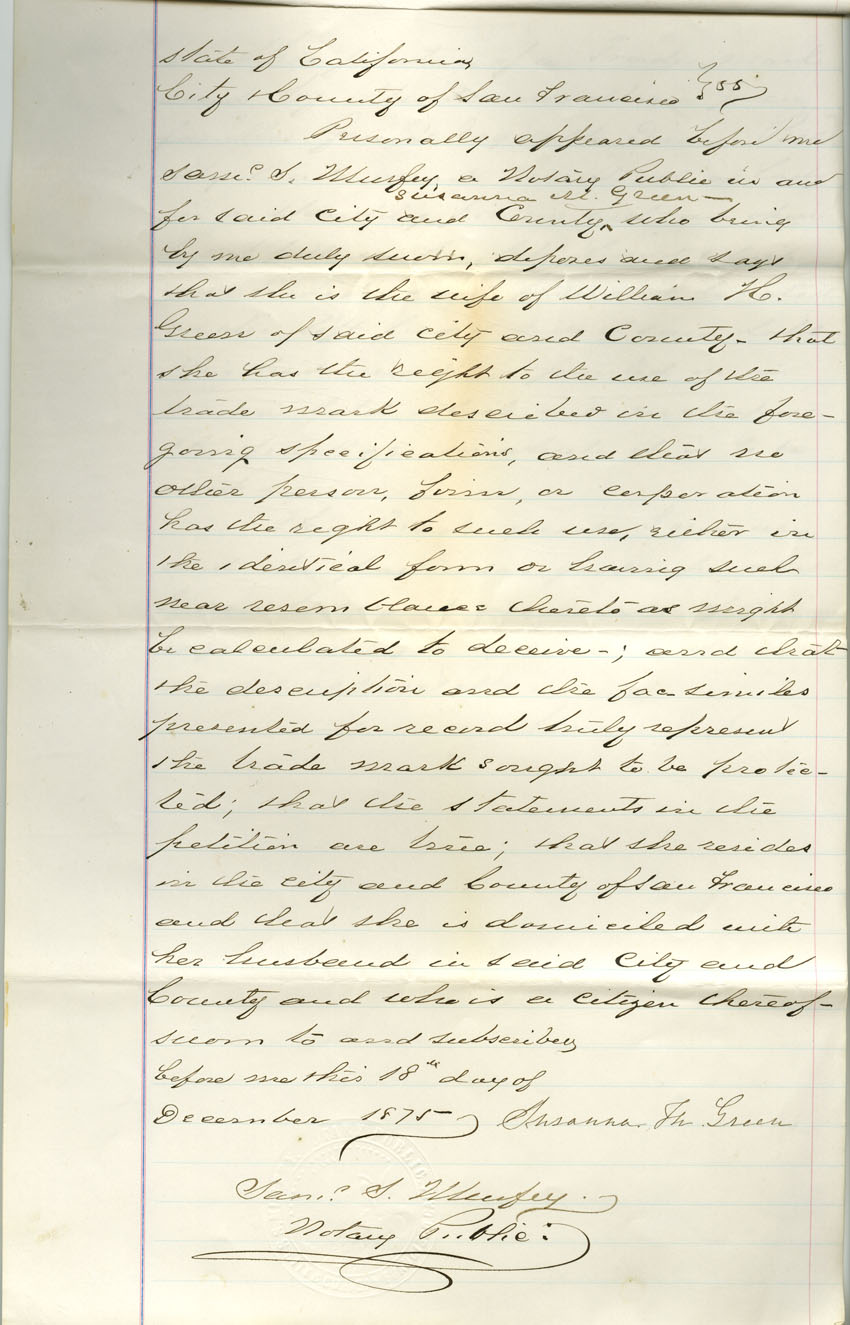 State of California
City & County of San Francisco } ss
Personally appeared before me
Saml. S. Murfey a Notary Public in and
Susanna M. Green
for said City and County, who being
by me duly sworn, deposes and says
that she is the wife of William H.
Green of said City and County - that
she has the right to the use of the
trade mark described in the fore-
going specifications, and that no
other person, firm, or corporation
has the right to such use, either in
the identical form or having such
near resemblance thereto as might
be calculated to deceive -; and that
the description and the fac-similes
presented for record truly represent
the trade mark sought to be protec-
ted; that the statements in the
petition are true; that she resides
in the city and County of San Francisco
and that she is domiciled with
her husband in said City and
County and who is a citizen thereof -
sworn to and subscribed
before me this 18th day of
December 1875 Susanna M. Green
Saml. S. Murfey.
Notary Public.